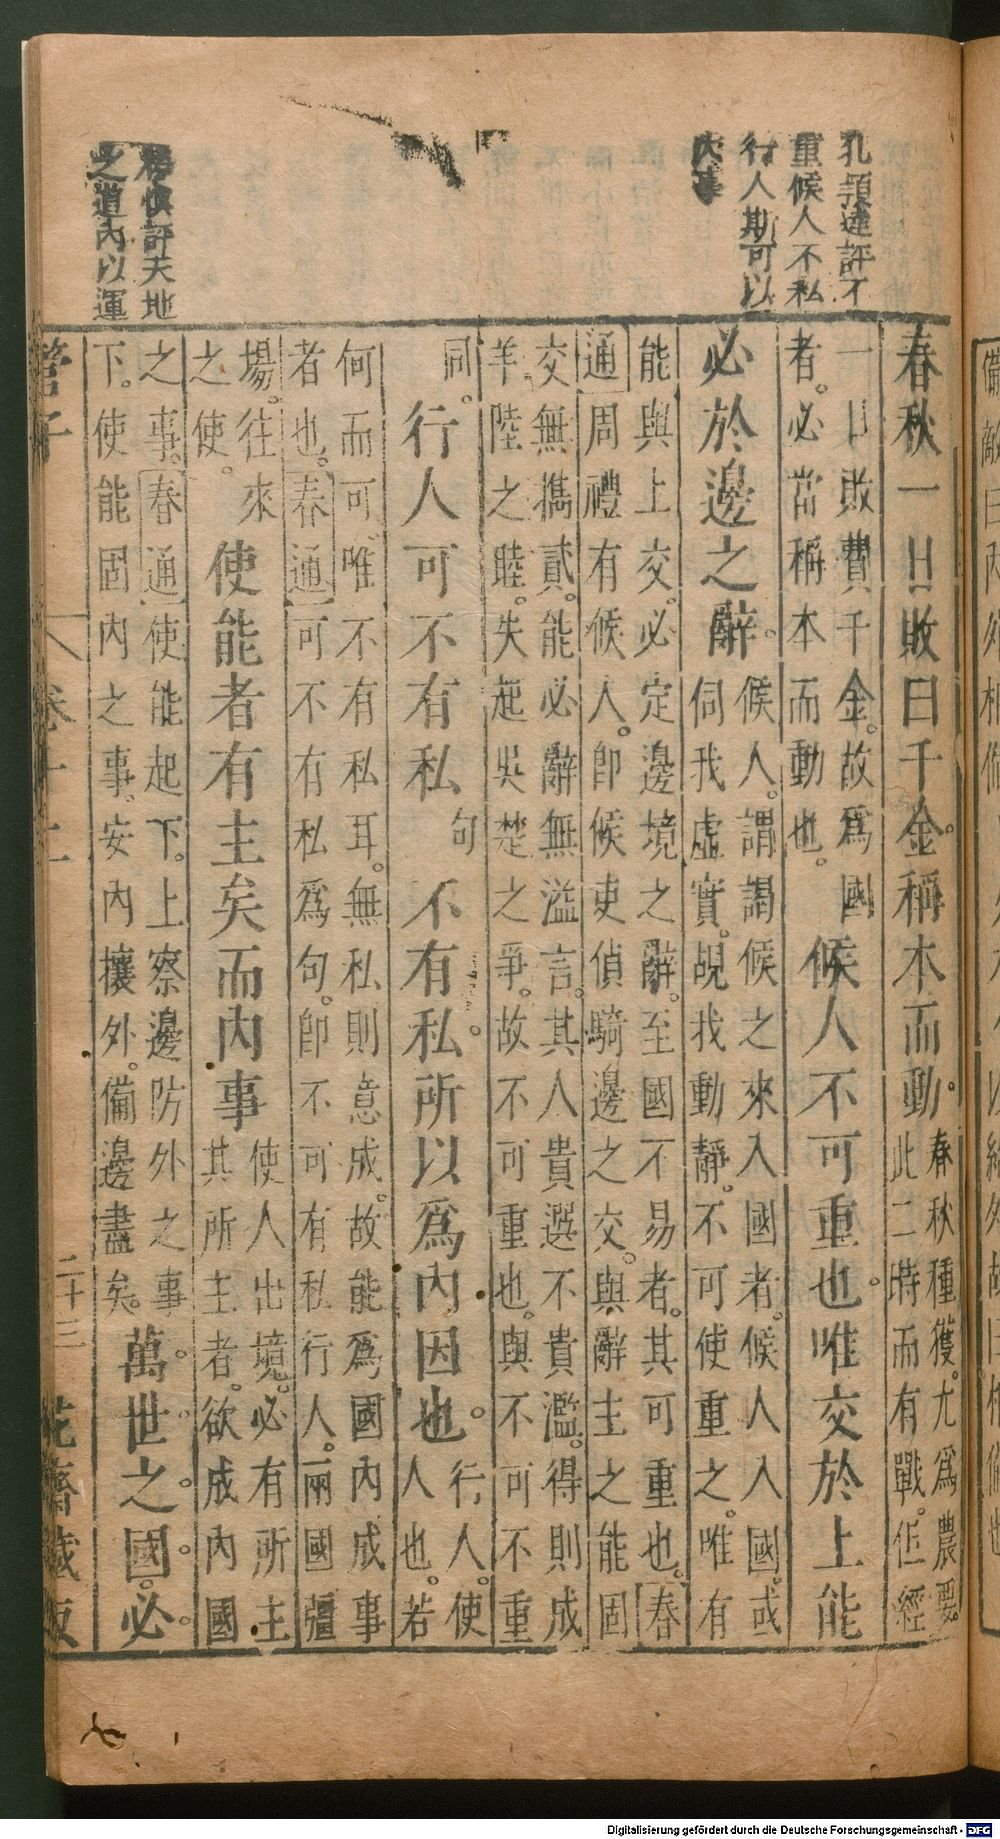 孔頴達評不
重候人不私
行人斯可以
春秋一日敗曰千金稱本而動春秋種獲尤爲農要
此二時而有戰但經
一日敗費千金故爲國
者必當稱本而動也候人不可重也唯交於上能
必於邊之辭候人謂謁候之來入國者候人入國或
伺我虛實覘我動靜不可使重之唯有
能與上交必定邊境之辭至國不易者其可重也春
通周禮有候人卽候吏偵騎邊之交與辭主之能固
交無攜貳能必辭無溢言其人貴選不貴濫得則成
羊陸之睦失起吳楚之爭故不可重也與不可不重
同行人可不有私句不有私所以爲內因也行人使
人也若
何而可唯不有私耳無私則意成故能爲國內成事
者也春通可不有私爲句卽不可有私行人兩國疆
場往來
之使使能者有主矣而內事使人出境必有所主
其所主者欲成內國
之事春通使能起下上察邊防外之事
下使能固內之事安內攘外備邊盡矣萬世之國必
楊慎評天地
之道內以運
管子
卷十二
二十三
花齋藏版
Digitalisierung gefördert durch die Deutsche Forschungsgemeinschaft - DFG